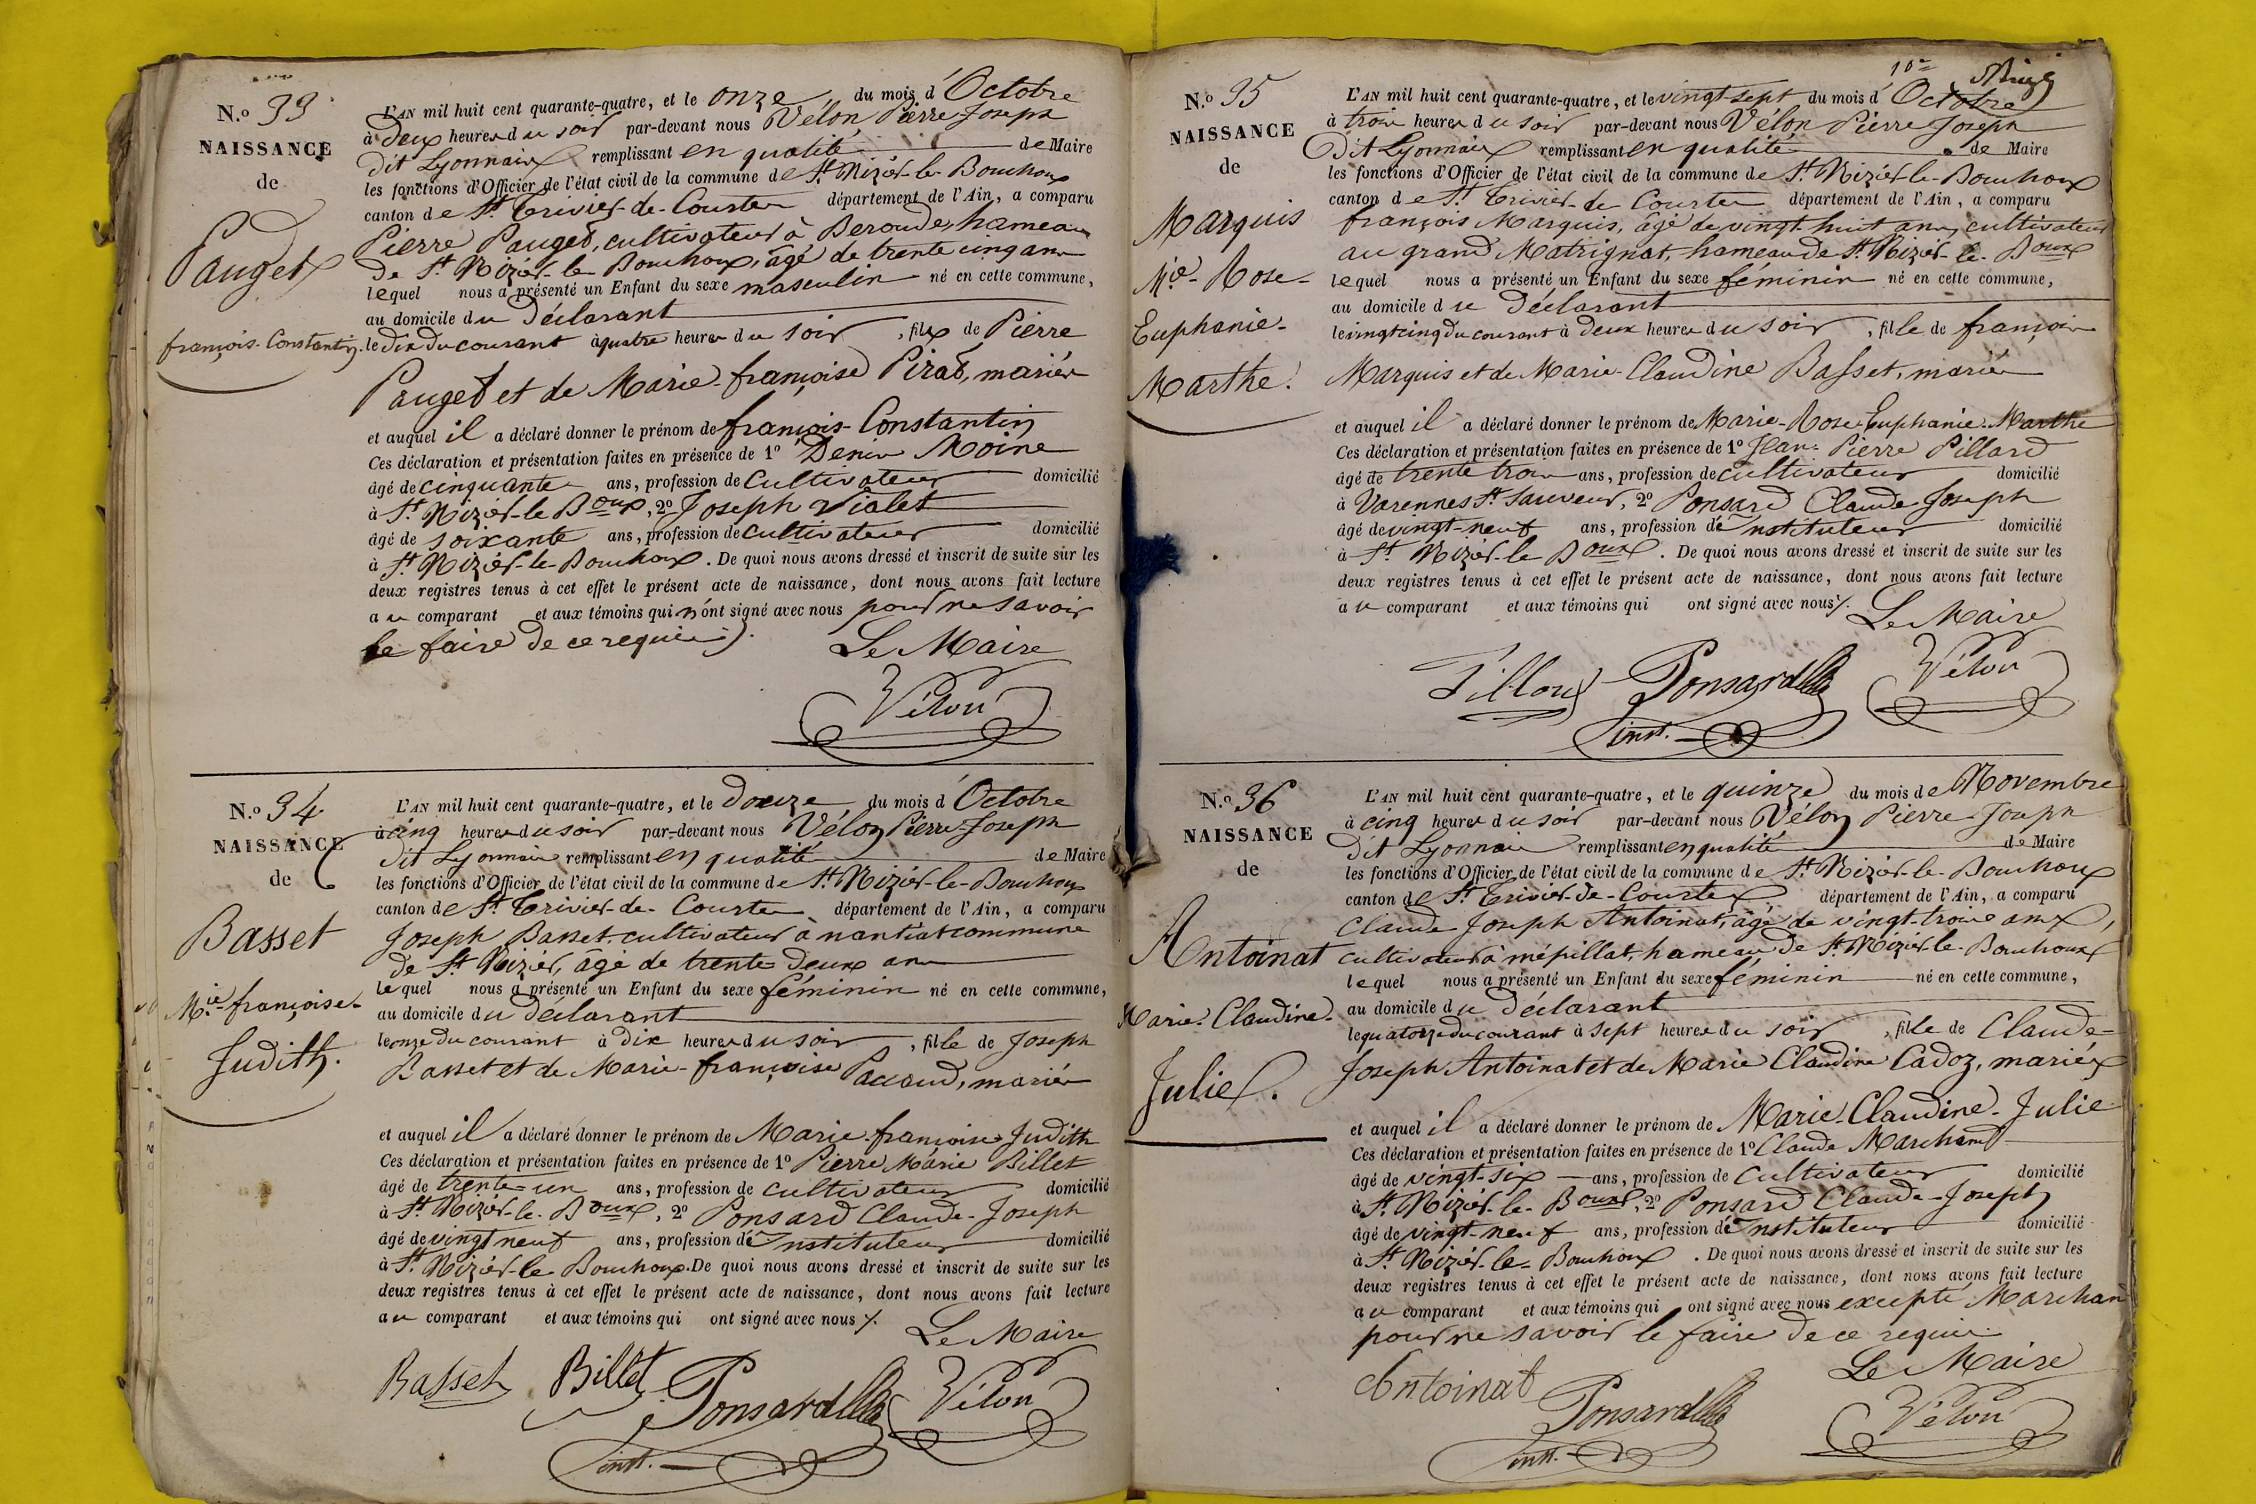 N.o 33
NAISSANCE
de
Pauget
françois-Constantin.
L'AN mil huit cent quarante-quatre, et le onze du mois d'Octobre
à Deux heures du soir par-devant nous Vélon Pierre-Joseph
dit Lyonnais remplissant en qualité de Maire
les fonctions d'Officier de l'état civil de la commune de St Nizier-le-Bouchoux
canton de St Trivier-de-Courtes département de l'Ain, a comparu
Pierre Pauget, cultivateur à Beroude, hameau
de St Nizier-le Bouchoux, âgé de trente cinq ans
lequel nous a présenté un Enfant du sexe masculin né en cette commune,
au domicile du Déclarant
le Dix du courant à quatre heures du soir, fils de Pierre
Pauget et de Marie-françoise Pirat, mariés
et auquel il a déclaré donner le prénom de françois-Constantin
Ces déclaration et présentation faites en présence de 1o Denis Moine
âgé de cinquante ans, profession de Cultivateur domicilié
à St Nizier-le Boux, 2o Joseph Vialet
âgé de soixante ans, profession de cultivateur domicilié
à St Nizier-le-Bouchoux. De quoi nous avons dressé et inscrit de suite sur les
deux registres tenus à cet effet le présent acte de naissance, dont nous avons fait lecture
au comparant et aux témoins qui n'ont signé avec nous pour ne savoir
le faire de ce requis.
Le Maire
Vélon
N.o 34
NAISSANCE
de
Basset
Mie-françoise-
Judith.
L'AN mil huit cent quarante-quatre, et le Douze du mois d'Octobre
à cinq heures du soir par-devant nous Vélon Pierre-Joseph
dit Lyonnais remplissant en qualité de Maire
les fonctions d'Officier de l'état civil de la commune de St Nizier-le-Bouchoux
canton de St Trivier-de-Courtes département de l'Ain, a comparu
Joseph Basset, cultivateur à nantiat commune
de St Nizier, âgé de trente Deux ans
lequel nous a présenté un Enfant du sexe féminin né en cette commune,
au domicile du Déclarant
le onze du courant à Dix heures du soir, fille de Joseph
Basset et de Marie-françoise Paccaud, mariés
et auquel il a déclaré donner le prénom de Marie-françoise Judith
Ces déclaration et présentation faites en présence de 1o Pierre Marie Billet
âgé de trente-un ans, profession de cultivateur domicilié
à St Nizier-le-Boux, 2o Ponsard Claude-Joseph
âgé de vingt neuf ans, profession d'Instituteur domicilié
à St Nizier-le-Bouchoux. De quoi nous avons dressé et inscrit de suite sur les
deux registres tenus à cet effet le présent acte de naissance, dont nous avons fait lecture
au comparant et aux témoins qui ont signé avec nous
Le Maire
Basset Billet Ponsard Vélon
inst.
10e
N.o 35
NAISSANCE
de
Marquis
Mie-Rose-
Euphanie-
Marthe.
L'AN mil huit cent quarante-quatre, et le vingt-sept du mois d'Octobre
à trois heures du soir par-devant nous Vélon Pierre Joseph
Dit Lyonnais remplissant en qualité de Maire
les fonctions d'Officier de l'état civil de la commune de St Nizier-le-Bouchoux
canton de St Trivier-de Courtes département de l'Ain, a comparu
françois Marquis, âgé de vingt-huit ans, cultivateur
au grand Matrignat, hameau de St Nizier-le-Boux
lequel nous a présenté un Enfant du sexe féminin né en cette commune,
au domicile du Déclarant
le vingt cinq du courant à Deux heures du soir, fille de françois
Marquis et de Marie-Claudine Basset, mariés
et auquel il a déclaré donner le prénom de Marie-Rose-Euphanie-Marthe
Ces déclaration et présentation faites en présence de 1o Jean-Pierre Pillard
âgé de trente trois ans, profession de cultivateur domicilié
à Varennes St Sauveur, 2o Ponsard Claude-Joseph
âgé de vingt-neuf ans, profession d'Instituteur domicilié
à St Nizier-le Boux. De quoi nous avons dressé et inscrit de suite sur les
deux registres tenus à cet effet le présent acte de naissance, dont nous avons fait lecture
au comparant et aux témoins qui ont signé avec nous
Le Maire
Ponsard Vélon
inst.
N.o 36
NAISSANCE
de
Antoinat
Marie-Claudine-
Julie.
L'AN mil huit cent quarante-quatre, et le quinze du mois de Novembre
à cinq heures du soir par-devant nous Vélon Pierre-Joseph
dit Lyonnais remplissant en qualité de Maire
les fonctions d'Officier de l'état civil de la commune de St Nizier-le-Bouchoux
canton de St Trivier-de-Courtes département de l'Ain, a comparu
Claude Joseph Antoinat, âgé de vingt-trois ans,
cultivateur à mépillat, hameau de St Nizier-le-Bouchoux
lequel nous a présenté un Enfant du sexe féminin né en cette commune,
au domicile du Déclarant
le quatorze du courant à sept heures du soir, fille de Claude-
Joseph Antoinat et de Marie Claudine Cadoz, mariés
et auquel il a déclaré donner le prénom de Marie-Claudine-Julie
Ces déclaration et présentation faites en présence de 1o Claude Marchand
âgé de vingt-six ans, profession de Cultivateur domicilié
à St Nizier-le-Boux, 2o Ponsard Claude-Joseph
âgé de vingt-neuf ans, profession d'Instituteur domicilié
à St Nizier-le-Bouhoux. De quoi nous avons dressé et inscrit de suite sur les
deux registres tenus à cet effet le présent acte de naissance, dont nous avons fait lecture
au comparant et aux témoins qui ont signé avec nous excepté Marchand
pour ne savoir le faire de ce requis.
Le Maire
Antoinat Ponsard Vélon
inst.